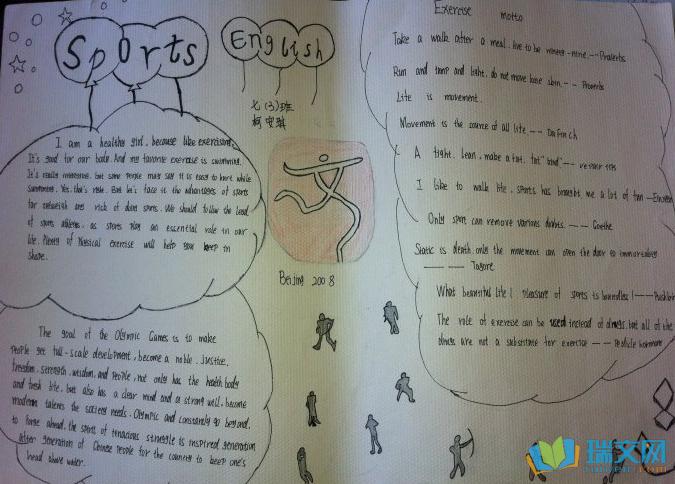 Sports
English
七(3)班
I am a healthy girl, because like exercising.
It's good for our body. And my favorite exercise is swimming.
It's really interesting, but some people may say it is easy to hurt while
swimming. Yes, that's right. But let's face it the advantages of sports
for outweigh are risk of doing sports. We should follow the lead
of sports athletes, as sports play an essential role in our
life. Plenty of Physical exercise will help you keep in
shape.
Beijing 2008
The goal of the Olympic Games is to make
people get full-scale development, become a noble, justice,
freedom, strength, wisdom, and people, not only has the health body
and fresh life, but also has a clear mind and a strong will, become
modern talents the society needs. Olympic and constantly go beyond,
to forge ahead, the spirit of tenacious struggle is inspired generation
after generation of Chinese people for the country to keep one's
head above water.
Exercise motto
Take a walk after a meal, live to be ninety-nine. -- Proverbs
Run and jump and light, do not move lose skin. -- Proverbs
Life is movement.
Movement is the source of all life -- Da Finch
A tight, lean, make a fat, fat" and" --
I like to walk life, sports has brought me a lot of fun -- Einstein
Only sport can remove various doubts. -- Goethe
Static is death, only the movement can open the door to immortality
-- Tagore
What beautiful life! pleasure of sports is boundless! -- Pushkin
The role of exercise can be used instead of drugs, but all of the
drugs are not a substitute for exercise --
瑞文网